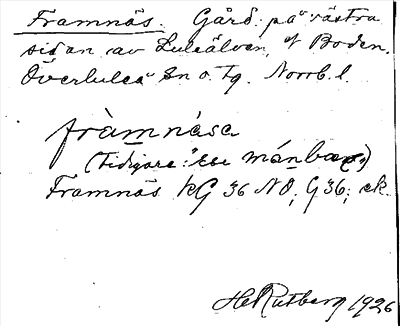 Framnäs. Gård på västra
sidan av Luleälven, vf Boden.
Överluleå Sn o. Tg. Norrb. l.
fràmnása
(Tidigare:
Framnäs kG 36 NO; G 36; ek.
Hel Rutberg 1926